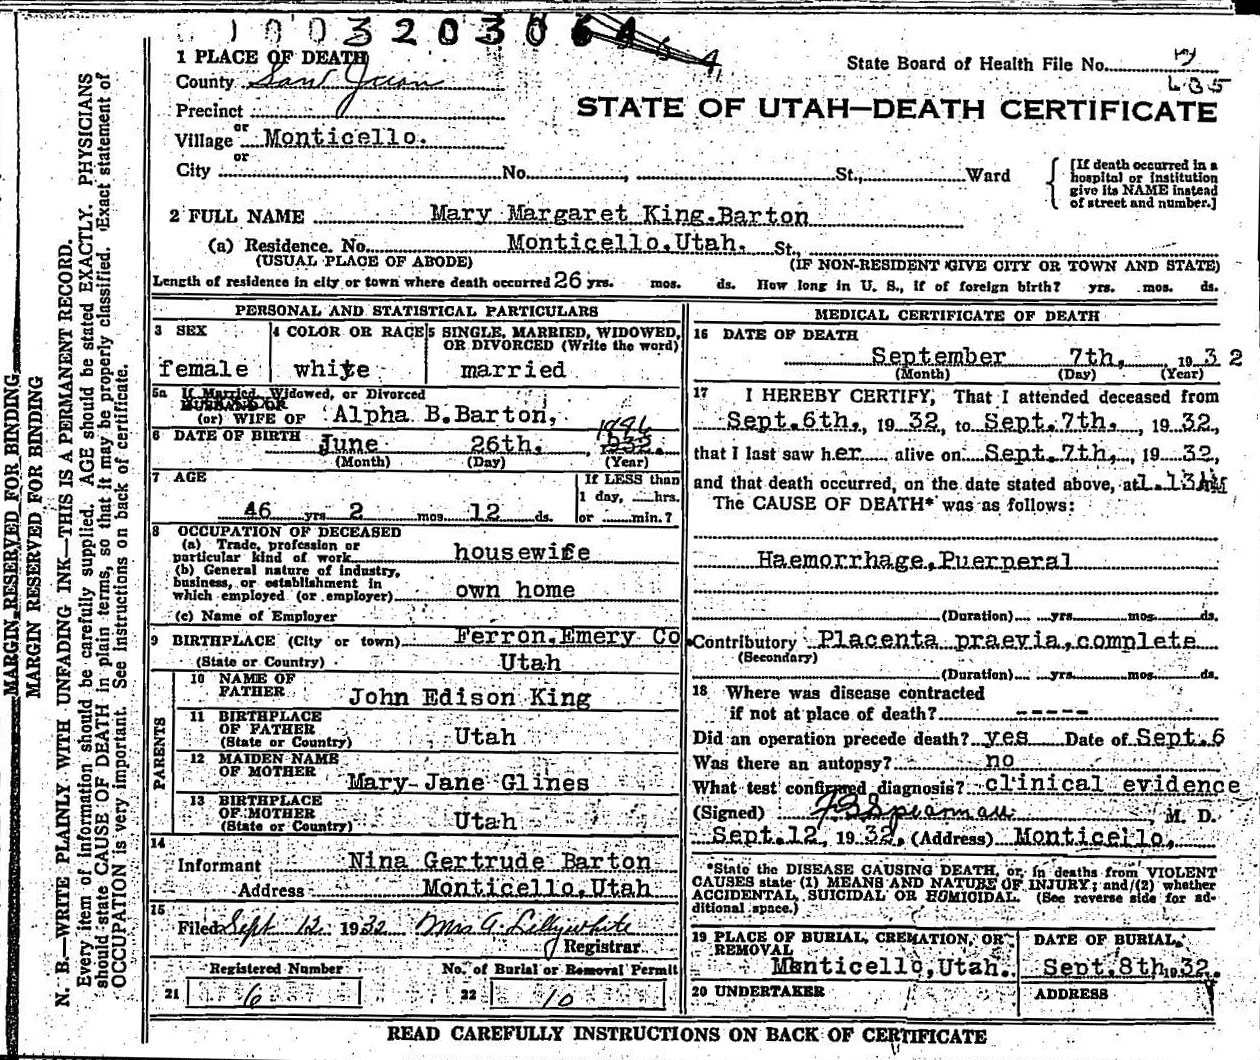 1003203064
1 PLACE OF DEATH
County San Juan
State Board of Health File No.
Precinct
STATE OF UTAH—DEATH CERTIFICATE
or
Village Monticello.
or
City No. , St., Ward
[If death occurred in a
hospital or institution
give its NAME instead
of street and number.]
2 FULL NAME Mary Margaret King.Barton
(a) Residence. No. Monticello.Utah. St.,
(USUAL PLACE OF ABODE) (IF NON-RESIDENT GIVE CITY OR TOWN AND STATE)
Length of residence in city or town where death occurred 26 yrs. mos. ds. How long in U. S., if of foreign birth? yrs. mos. ds.
PERSONAL AND STATISTICAL PARTICULARS
3 SEX 4 COLOR OR RACE 5 SINGLE, MARRIED, WIDOWED,
OR DIVORCED (Write the word)
female white married
5a If Married, Widowed, or Divorced
HUSBAND OF
(or) WIFE OF Alpha B.Barton,
6 DATE OF BIRTH June 26th. , 1932. 1886
(Month) (Day) (Year)
7 AGE If LESS than
1 day, hrs.
46 yrs 2 mos. 12 ds. or min.?
8 OCCUPATION OF DECEASED
(a) Trade, profession or
particular kind of work housewife
(b) General nature of industry,
business, or establishment in
which employed (or employer) own home
(c) Name of Employer
9 BIRTHPLACE (City or town) Ferron.Emery Co.
(State or Country) Utah
PARENTS
10 NAME OF
FATHER John Edison King
11 BIRTHPLACE
OF FATHER
(State or Country) Utah
12 MAIDEN NAME
OF MOTHER Mary Jane Glines
13 BIRTHPLACE
OF MOTHER
(State or Country) Utah
14
Informant Nina Gertrude Barton
Address Monticello,Utah
15
Filed Sept 12 1932 Mrs A. Lillywhite
Registrar
Registered Number No. of Burial or Removal Permit
21 6 22 10
MEDICAL CERTIFICATE OF DEATH
16 DATE OF DEATH
September 7th, 1932
(Month) (Day) (Year)
17 I HEREBY CERTIFY, That I attended deceased from
Sept.6th., 1932, to Sept.7th., 1932,
that I last saw her alive on Sept.7th, , 1932,
and that death occurred, on the date stated above, at 1.13AM
The CAUSE OF DEATH* was as follows:
Haemorrhage,Puerperal
(Duration) yrs. mos. ds.
Contributory Placenta praevia,complete
(Secondary)
(Duration) yrs. mos. ds.
18 Where was disease contracted
if not at place of death? -----
Did an operation precede death? yes Date of Sept.6
Was there an autopsy? no
What test confirmed diagnosis? clinical evidence
(Signed) , M. D.
Sept.12, 1932, (Address) Monticello,
*State the DISEASE CAUSING DEATH, or, in deaths from VIOLENT
CAUSES state (1) MEANS AND NATURE OF INJURY; and (2) whether
ACCIDENTAL, SUICIDAL OR HOMICIDAL. (See reverse side for ad-
ditional space.)
19 PLACE OF BURIAL, CREMATION, OR
REMOVAL
Monticello,Utah.
DATE OF BURIAL.
Sept.8th 1932.
20 UNDERTAKER ADDRESS
READ CAREFULLY INSTRUCTIONS ON BACK OF CERTIFICATE
MARGIN RESERVED FOR BINDING
MARGIN RESERVED FOR BINDING
N. B.—WRITE PLAINLY WITH UNFADING INK—THIS IS A PERMANENT RECORD.
Every item of information should be carefully supplied. AGE should be stated EXACTLY. PHYSICIANS
should state CAUSE OF DEATH in plain terms, so that it may be properly classified. Exact statement of
OCCUPATION is very important. See instructions on back of certificate.